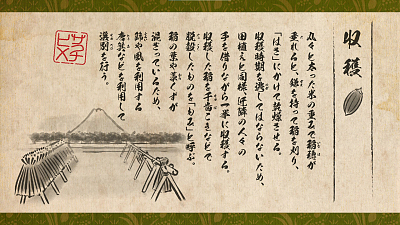 収穫
丸々と太った米の重みで稲穂が
垂れると、鎌を持って稲を刈り、
「はさ」にかけて乾燥させる。
収穫時期を逃してはならないため、
田植えと同様、近隣の人々の
手を借りながら一斉に収穫する。
収穫した稲を千歯こきなどで
脱穀したものを「もみ」と呼ぶ。
稲の葉や藁くずが
混ざっているため、
篩や風を利用する
唐箕などを利用して
選別を行う。